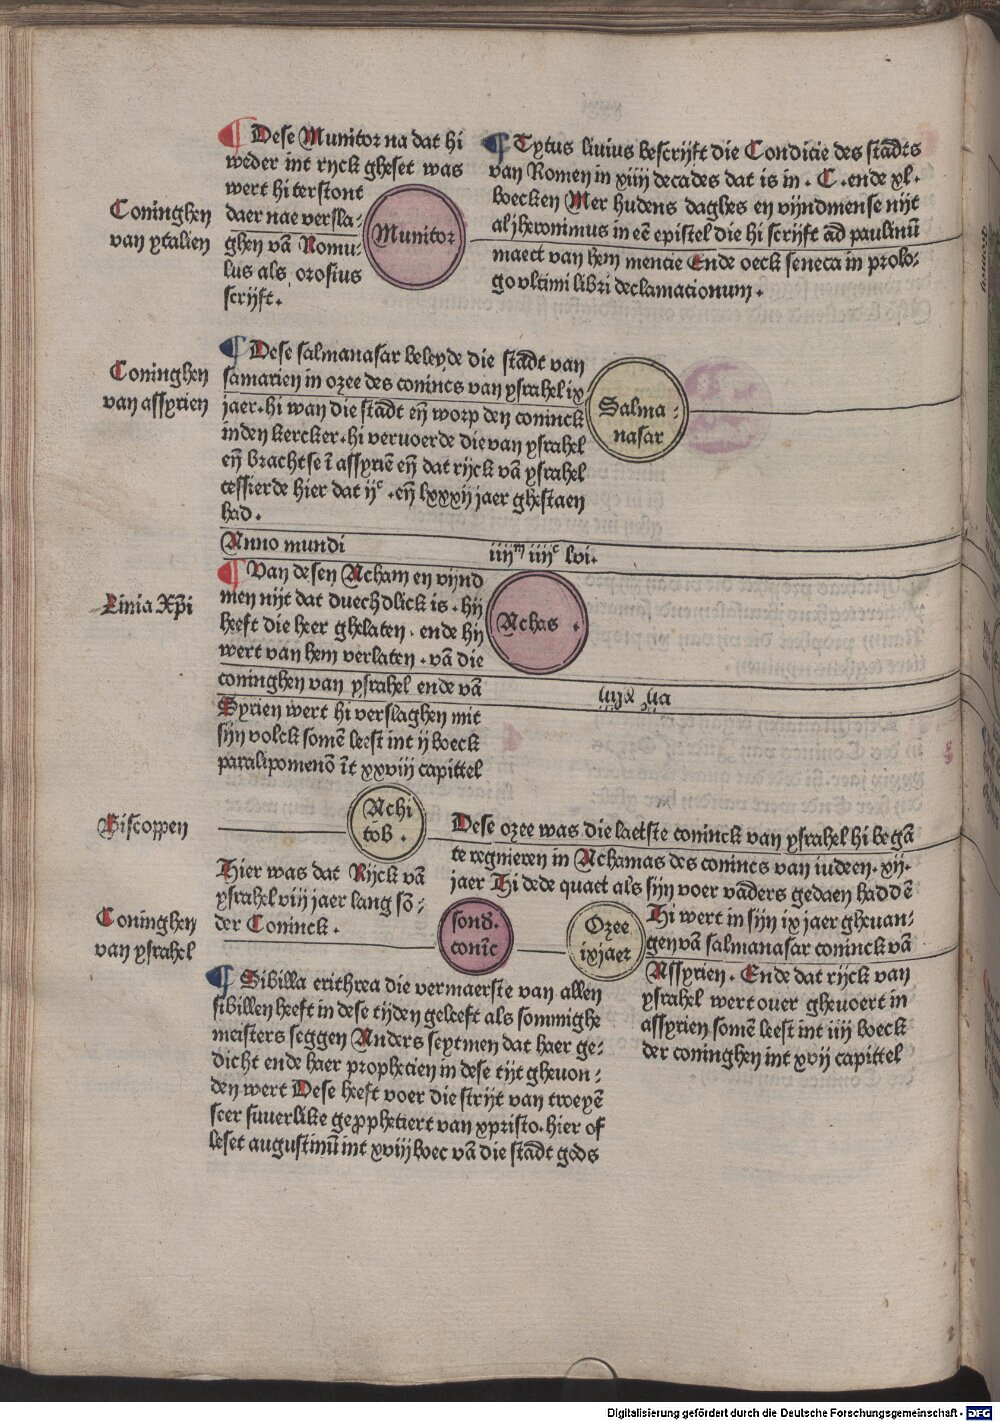 Coninghen
van ytalien
¶ Dese Munitor na dat hi
weder int rijck gheset was
wert hi terstont
daer nae versla⸗
ghen vā Romu⸗
lus als orosius
scrijft.
Munitor
¶ Tytus livius bescrijft die Condicie des stadts
van Romen in xiiij decades dat is in . C . ende xl.
boecken Mer hudens daghes en vijndmense nijt
al jheronimus in eē epistel die hi scrijft ād paulinū
maect van hem mencie Ende oeck seneca in prolo⸗
go vltimi libri declamacionum.
Coninghen
van assyrien
¶ Dese salmanasar beleyde die stadt van
samarien in ozee des conincs van ysrahel ix
jaer. hi wan die stadt eñ worp den coninck
inden kercker. hi veruoerde die van ysrahel
eñ bracht se ī assyriē eñ dat rijck vā ysrahel
cessierde hier dat ijᶜ . eñ lxxxij jaer ghestaen
had.
Salma⸗
nasar
Anno mundi
iiijᵐ iiijᶜ lvi.
Linia Xp̄i
¶ Van desen Acham en vijnd
men nijt dat duechdlick is. hij
heeft die heer ghelaten. ende hij
wert van hem verlaten. vā die
coninghen van ysrahel ende vā
Syrien wert hi verslaghen mit
sijn volck somē leest int ij boeck
paralipomenō īt xxviij capittel
Achas .
Biscoppen
Achi
tob.
Hier was dat Rijck vā
ysrahel viij jaer lang sō⸗
der Coninck.
Coninghen
van ysrahel
sond.
conīc
Ozee
ix jaer
Dese ozee was die laetste coninck van ysrahel hi begā
te regnieren in Achamas des conincs van iudeen. xij.
jaer Hi dede quaet als sijn voer vāders gedaen haddē
Hi wert in sijn ix jaer gheuan⸗
gen vā salmanasar coninck vā
Assyrien. Ende dat rijck van
ysrahel wert ouer gheuoert in
assyrien somē leest int iiij boeck
der coninghen int xvij capittel
¶ Sibilla erithrea die vermaerste van allen
sibillen heeft in dese tijden geleeft als sommighe
meisters seggen Anders seytmen dat haer ge⸗
dicht ende haer prophecien in dese tijt gheuon⸗
den wert Dese heeft voer die strijt van tweyē
seer suuerlike geꝓphetiert van xpristo. hier of
leset augustinū int xviij boec vā die stadt gods
Digitalisierung gefördert durch die Deutsche Forschungsgemeinschaft - DFG